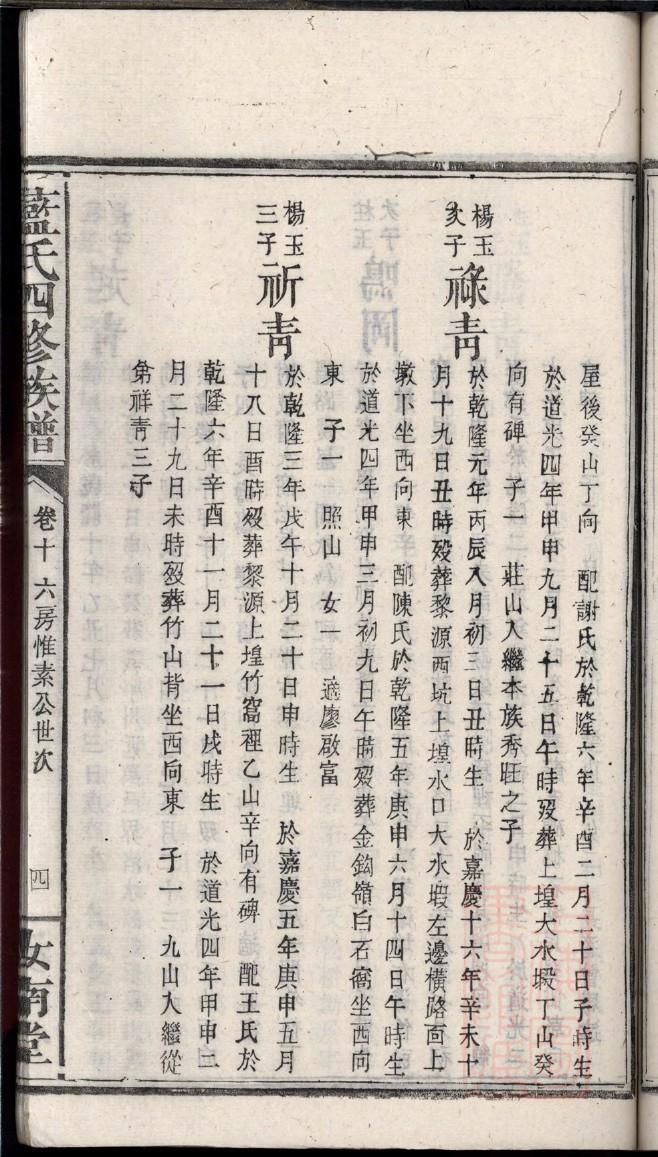 屋後癸山丁向 配謝氏於乾隆六年辛酉二月二十日子時生
於道光四年甲申九月二十五日午時歿葬上堭大水塅丁山癸
向有碑 子一 莊山入繼本族秀旺之子
楊玉
次子
祿青
於乾隆元年丙辰八月初三日丑時生 於嘉慶十六年辛未十
月十九日丑時歿葬黎源西坑上堭水口大水塅左邊橫路面上
墩下坐西向東 配陳氏於乾隆五年庚申六月十四日午時生
於道光四年甲申三月初九日午時歿葬金鈎嶺白石窩坐西向
東 子一 照山 女一 適廖啟富
楊玉
三子
祈青
於乾隆三年戊午十月二十日申時生 於嘉慶五年庚申五月
十八日酉時歿葬黎源上堭竹窩裡乙山辛向有碑 配王氏於
乾隆六年辛酉十一月二十一日戌時生 於道光四年甲申二
月二十九日未時歿葬竹山背坐西向東 子一 九山入繼從
弟祥青三子
藍氏四修族譜
卷十六房惟素公世次
四
汝南堂